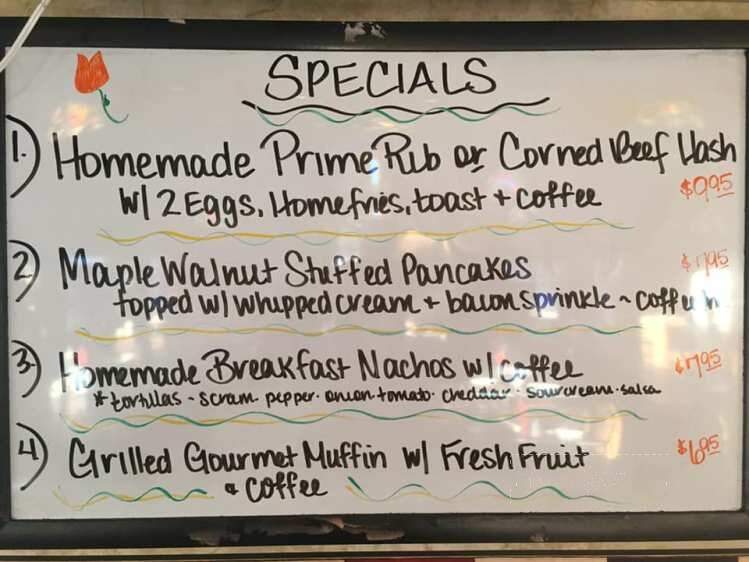 SPECIALS
1.) Homemade Prime Rib or Corned Beef Hash
w/ 2 Eggs, Homefries, toast + coffee
$9.95
2) Maple Walnut Stuffed Pancakes
topped w/ whipped cream + bacon sprinkle ~
3.) Homemade Breakfast Nachos w/ coffee
$7.95
* tortillas - scram. pepper. onion. tomato. cheddar. sour cream. salsa
4) Grilled Gourmet Muffin w/ Fresh Fruit
$6.95
+ coffee